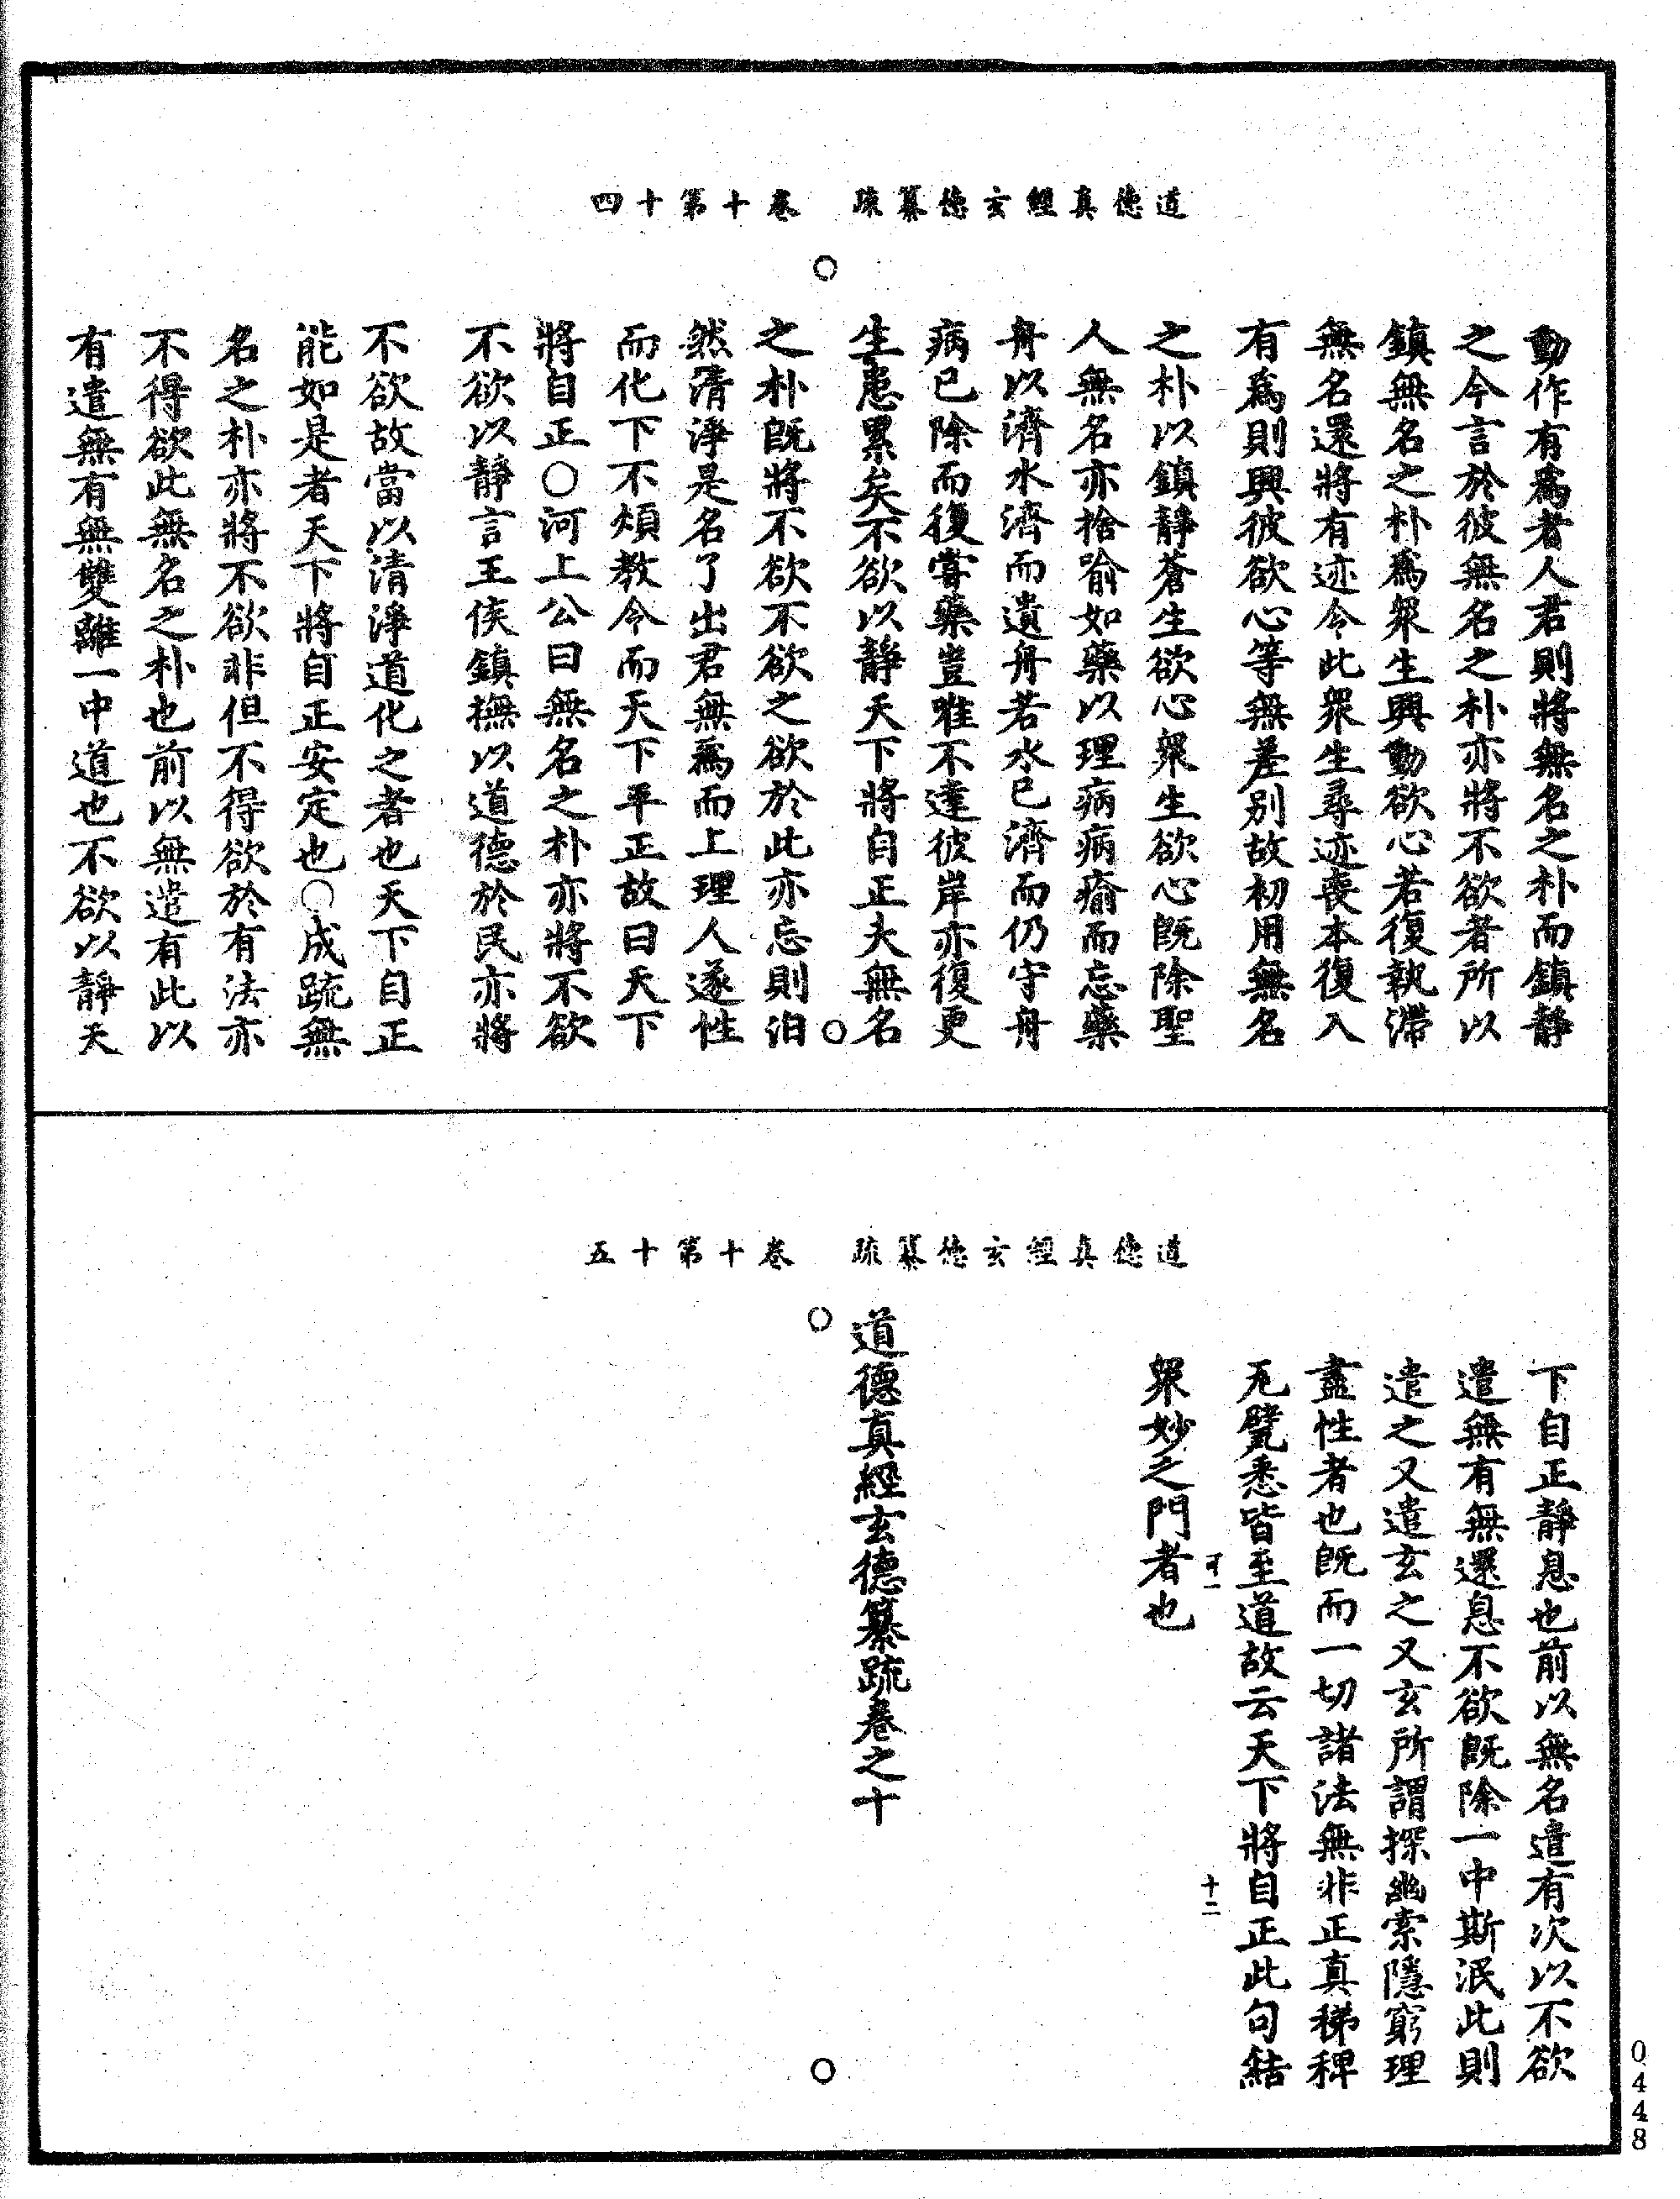 道德真經玄德纂疏　卷十第十四
動作有為者人君則將無名之朴而鎮靜
之今言於彼無名之朴亦將不欲者所以
鎮無名之朴為眾生興動欲心若復執滯
無名還將有迹今此眾生尋迹喪本復入
有為則興彼欲心等無差別故初用無名
之朴以鎮靜蒼生欲心眾生欲心既除聖
人無名亦捨喻如藥以理病病瘉而忘藥
舟以濟水濟而遺舟若水已濟而仍守舟
病已除而復嘗藥豈唯不達彼岸亦復更
生患累矣不欲以靜天下將自正夫無名
之朴既將不欲不欲之欲於此亦忘則泊
然清淨是名了出君無為而上理人遂性
而化下不煩教令而天下平正故曰天下
將自正○河上公曰無名之朴亦將不欲
不欲以靜言王侯鎮撫以道德於民亦將
不欲故當以清淨道化之者也天下自正
能如是者天下將自正安定也○成疏無
名之朴亦將不欲非但不得欲於有法亦
不得欲此無名之朴也前以無遣有此以
有遣無有無雙離一中道也不欲以靜天
道德真經玄德纂疏　卷十第十五
下自正靜息也前以無名遣有次以不欲
遣無有無還息不欲既除一中斯泯此則
遣之又遣玄之又玄所謂探幽索隱窮理
盡性者也既而一切諸法無非正真稊稗
瓦甓悉皆至道故云天下將自正此句結
可一　十二
眾妙之門者也
道德真經玄德纂疏卷之十
0448